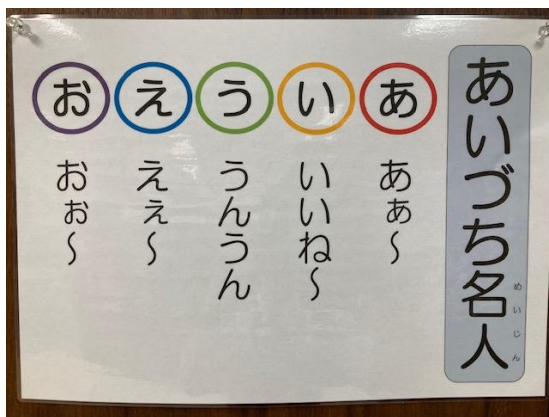 あいづち名人
めいじん
あ
ああ〜
い
いいね〜
う
うんうん
え
ええ〜
お
おお〜